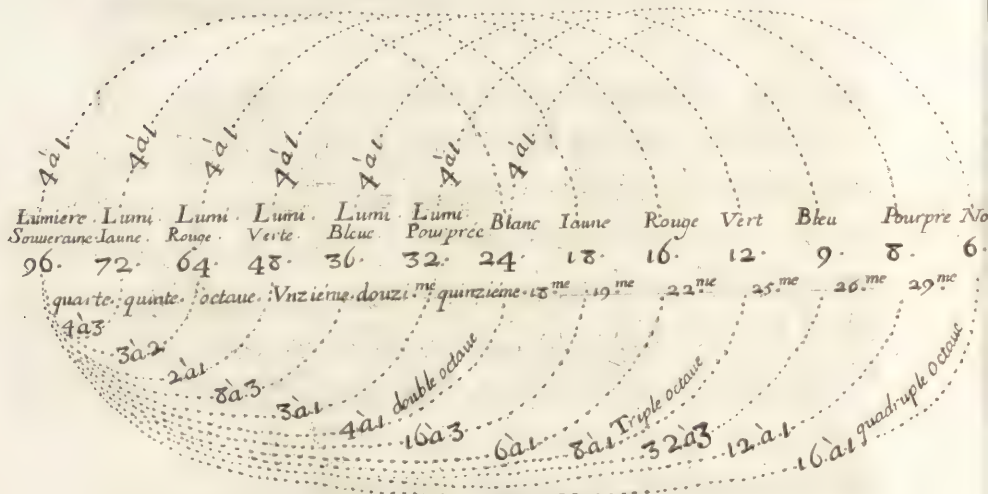 4 à 1 4 à 1 4 à 1 4 à 1 4 à 1 4 à 1 4 à 1
Lumiere . Lumi . Lumi . Lumi . Lumi . Lumi . Blanc Iaune Rouge Vert Bleu Pourpre No
Souueraine Iaune . Rouge . Verte . Bleue . Pourprée
96 . 72 . 64 . 48 . 36 . 32 . 24 . 18 . 16 . 12 . 9 . 8 . 6 .
quarte . quinte . octaue . Vnziéme . douzi.me quinziéme . 18.me 19.me 22.me 25.me 26.me 29.me
4 à 3
3 à 2
2 à 1
8 à 3
3 à 1
4 à 1 double octaue
16 à 3
6 à 1
8 à 1 Triple octaue
32 à 3
12 à 1
16 à 1 quadruple octaue